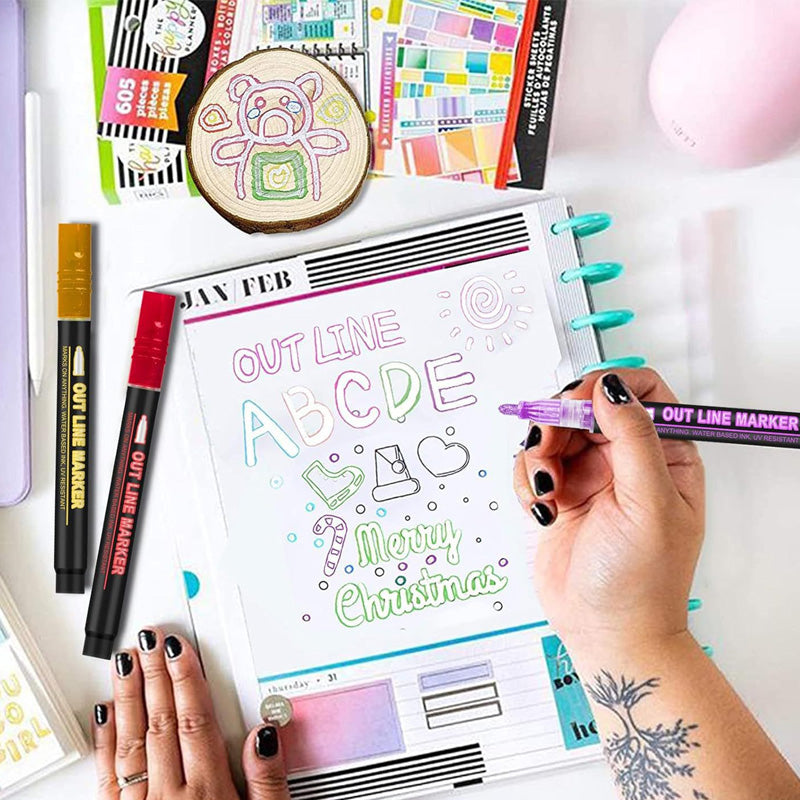 THE
happy
PLANNER
605
pieces
pièces
piezas
WEEKEND ADVENTURES
STICKER SHEETS
FEUILLES D'AUTOCOLLANTS
HOJAS DE PEGATINAS
JAN/FEB
OUT LINE
ABCDE
Merry
Christmas
thursday • 31
OUT LINE MARKER
MARKS ON ANYTHING, WATER BASED INK, UV RESISTANT
OUT LINE MARKER
OUT LINE MARKER
ANYTHING, WATER BASED INK, UV RESISTANT
YOU
GO
GIRL